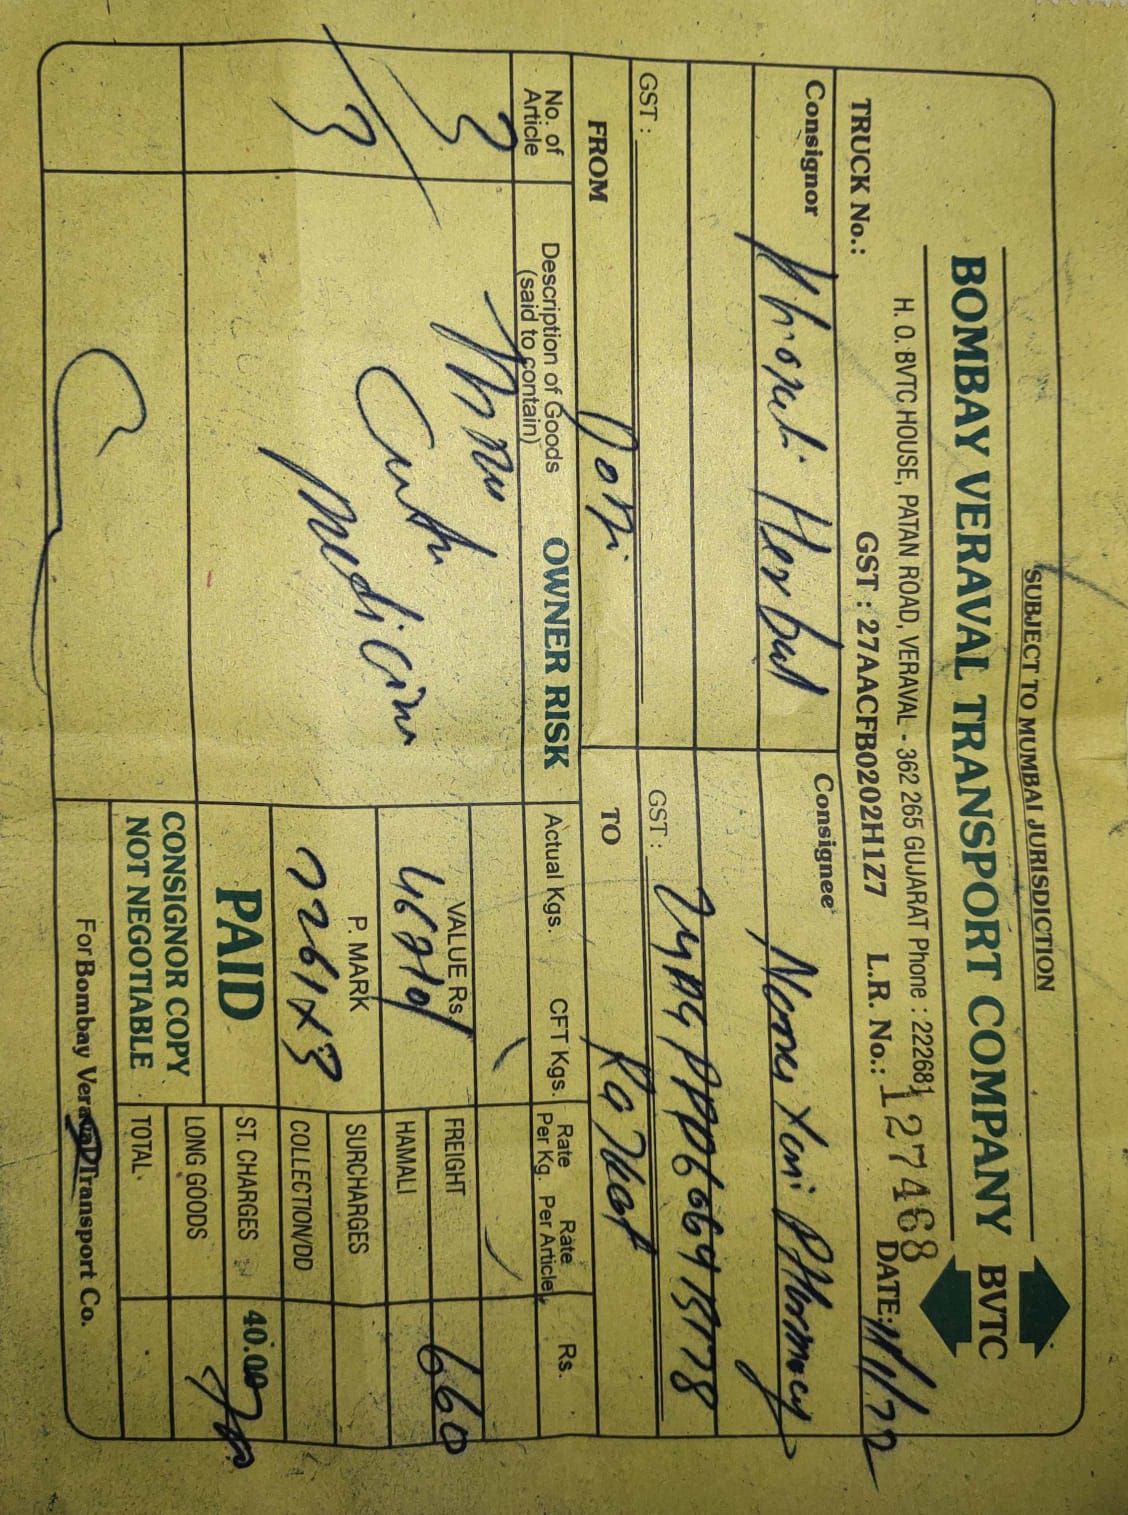 SUBJECT TO MUMBAI JURISDICTION
BOMBAY VERAVAL TRANSPORT COMPANY BVTC
H. O. BVTC HOUSE, PATAN ROAD, VERAVAL - 362 265 GUJARAT Phone : 222681
GST : 27AACFB0202H1Z7 L.R. No.: 127468
TRUCK No.: DATE:
Consignor Herbal
Consignee Pharmacy
GST :
GST :
FROM
TO Rajkot
No. of Article
Description of Goods (said to contain) OWNER RISK
Actual Kgs. CFT Kgs. Rate Per Kg. Rate Per Article Rs.
3
3
Medicine
VALUE Rs.
P. MARK
2261X3
PAID
CONSIGNOR COPY
NOT NEGOTIABLE
FREIGHT 660
HAMALI
SURCHARGES
COLLECTION/DD
ST. CHARGES 40.00
LONG GOODS
TOTAL
For Bombay Veraval Transport Co.